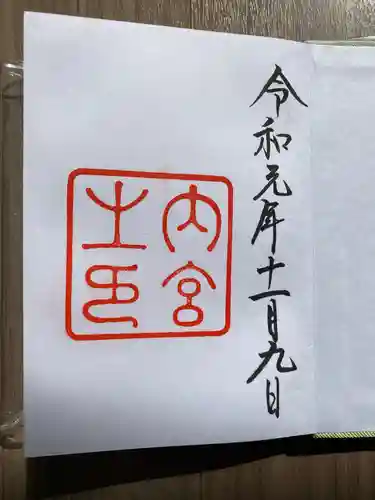 令和元年十一月九日
内宮
之印